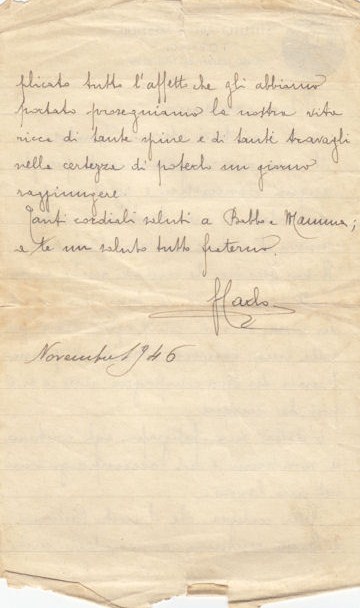 plicato tutto l'affetto che gli abbiamo
portato proseguiamo la nostra vita
ricca di tante spine e di tanti travagli
nella certezza di poterlo un giorno
raggiungere
Tanti cordiali saluti a Babbo e Mamma;
e te un saluto tutto fraterno.
Carlo
Novembre 1946